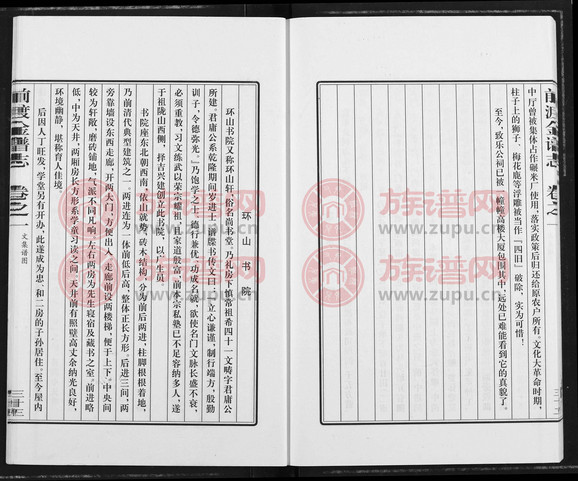 中厅曾被集体占作碾米厂使用,落实政策后归还给原农户所有。文化大革命时期,
柱子上的狮子、梅花鹿等浮雕被当作“四旧”破除,实为可惜!
至今,致乐公祠已被一幢幢高楼大厦包围其中,远处已难能看到它的真貌了。
环山书院
环山书院又称环山轩,俗名尚书堂。乃礼房下慎常祖希四十一文畴字君庸公
所建。君庸公系乾隆期间岁进士,谱牒书传文曰:立心谦谨,制行端方,殷勤
训子,令德弥光。乃饱学之士,德行兼优,功成名就,欲使名门文脉长盛不衰,
必须重教,习文练武以荣宗耀祖,且家道殷富,前本宗私塾已不足容纳多人,遂
于祖陇山西侧,择吉兴建创立此书院,以广生员。
书院座东北朝西南,依山就势,砖木结构,分为前后两进,柱脚根根着地,
乃前清代典型建筑之一。两进连为一体前低后高,整体正长方形。后进三间,两
旁靠墙设东西走廊,开两大门方便出入,走廊前设两楼梯,便于上下。中央间
较为轩敞,磨砖铺地,气派不同凡响,左右两房为先生寝宿及藏书之室。前进略
低,中为天井,两厢房长方形系学童习读之间。天井前有照壁高丈余纳光良好,
环境幽静,堪称育人佳境。
后因人丁旺发,学堂另有开办,此遂成为忠、和二房的子孙居住。至今屋内
前渡金谱志
卷之一
文集谱图
族谱网
www.zupu.cn